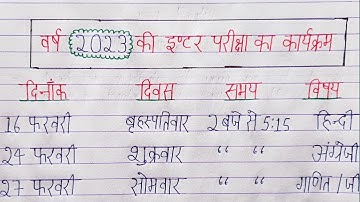 वर्ष 2023 की इण्टर परीक्षा का कार्यक्रम
दिनाँक दिवस समय विषय
16 फरवरी बृहस्पतिवार 2 बजे से 5:15 हिन्दी
24 फरवरी शुक्रवार " " अंग्रेजी
27 फरवरी सोमवार " " गणित/जी